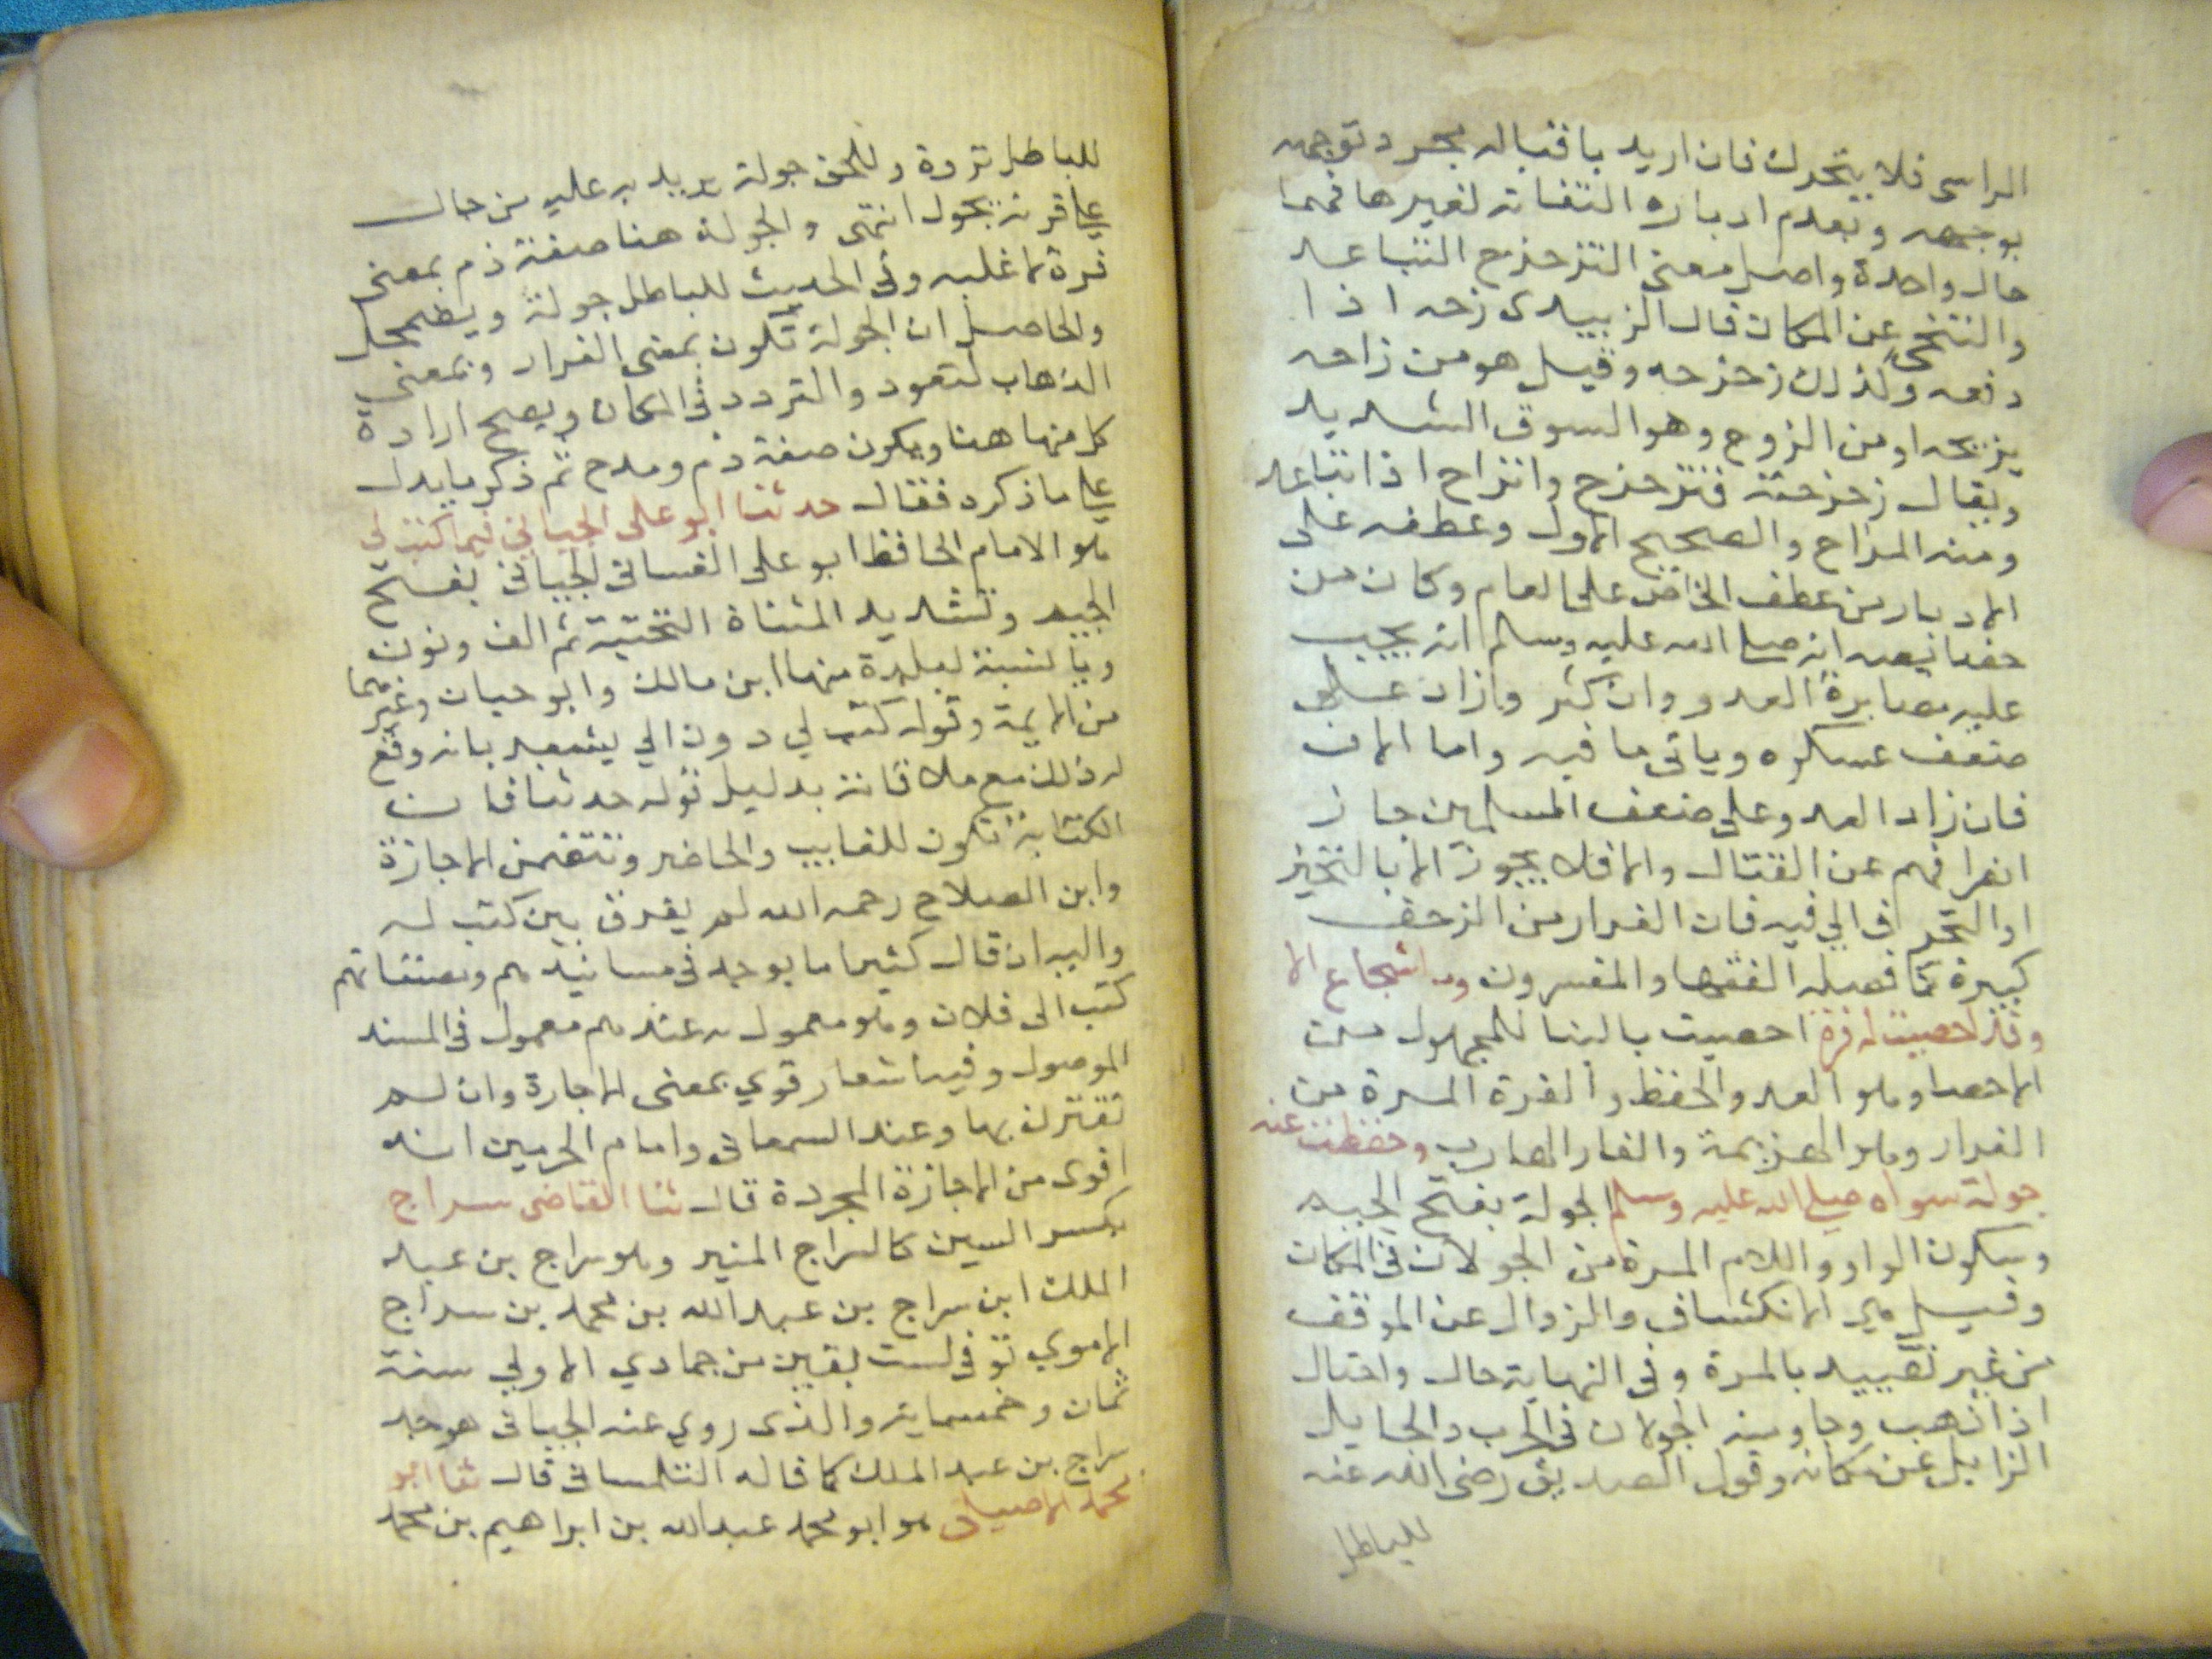 الراسى فلا يتحرك فان اريد باقباله مجرد توجهه
بوجهه وبعدم ادباره التفاته لغيرها فهما
حال واحدة واصل معنى التزحزح التباعد
والتنحى عن المكان قال الزبيدى زحه اذا
دفعه وكذلك زحزحه وقيل هو من زاحه
يزيحه او من الزوح وهو السوق الشديد
ويقال زحزحته فتزحزح وانزاح اذا تباعد
ومنه المزاح والصحيح الاول وعطفه على
الادبار من عطف الخاص على العام وكان من
خصائصه انه صلى الله عليه وسلم انه يجب
عليه مصابرة العدو وان كثر وزاد على
ضعف عسكره وياتى ما فيه واما الان
فان زاد العدو على ضعف المسلمين جاز
انصرافهم عن القتال والا فلا يجوز الا بالتحيز
او التحرف الى فيه فان الفرار من الزحف
كبيرة كما فصله الفقها والمفسرون وما شجاع الا
وقد احصيت له فرة احصيت بالبنا للمجهول من
الاحصا وهو العد والحفظ والفرة المرة من
الفرار وهو الهزيمة والفار الهارب وحفظت عنه
جولة سواه صلى الله عليه وسلم الجولة بفتح الجيم
وسكون الواو واللام المرة من الجولان فى المكان
وقيل هى الانكشاف والزوال عن الموقف
من غير تقييد بالمرة وفى النهاية جال واجتال
اذا ذهب وجا ومنه الجولان فى الحرب والجايل
الزايل عن مكانه وقول الصديق رضى الله عنه
للباطل
للباطل نزوة وللحق جولة يريد به عليه من جال
على قرنه يجول انتهى والجولة هنا صفة ذم بمعنى
فرة لا غلبه وفى الحديث للباطل جولة ويضمحل
والحاصل ان الجولة تكون بمعنى الفرار وبمعنى
الذهاب لتعود والتردد فى المكان ويصح ارادة
كل منها هنا ويكون صفة ذم ومدح ثم ذكر ما يدل
على ما ذكره فقال حدثنا ابو على الجيانى فيما كتب لى
هو الامام الحافظ ابو على الغسانى الجيانى بفتح
الجيم وتشديد المثناة التحتية ثم الف ونون
ويا لنسبة لبلدة منها ابن مالك وابو حيان وغيرهما
من الايمة وقوله كتب لي دون الي يشعر بانه وقع
له ذلك مع ملاقاته بدليل قوله حدثنا فان
الكتابة تكون للغايب والحاضر وتتضمن الاجازة
وابن الصلاح رحمه الله لم يفرق بين كتب له
واليه ان قال كثيرا ما يوجد فى مسانيدهم ومصنفاتهم
كتب الى فلان وهو معمول به عندهم معمول فى المسند
الموصول وفيه اشعار قوي بمعنى الاجازة وان لم
تقترن بها وعند السمعانى وامام الحرمين انه
اقوى من الاجازة المجردة قال ثنا القاضى سراج
بكسر السين كالسراج المنير وهو سراج بن عبد
الملك ابن سراج بن عبد الله بن محمد بن سراج
الاموي توفى لست بقين من جمادي الاولي سنة
ثمان وخمسماية والذى روي عنه الجيانى هو جد
سراج بن عبد الملك كما قاله التلمسانى قال ثنا ابو
محمد الاصيلى هو ابو محمد عبد الله بن ابراهيم بن محمد